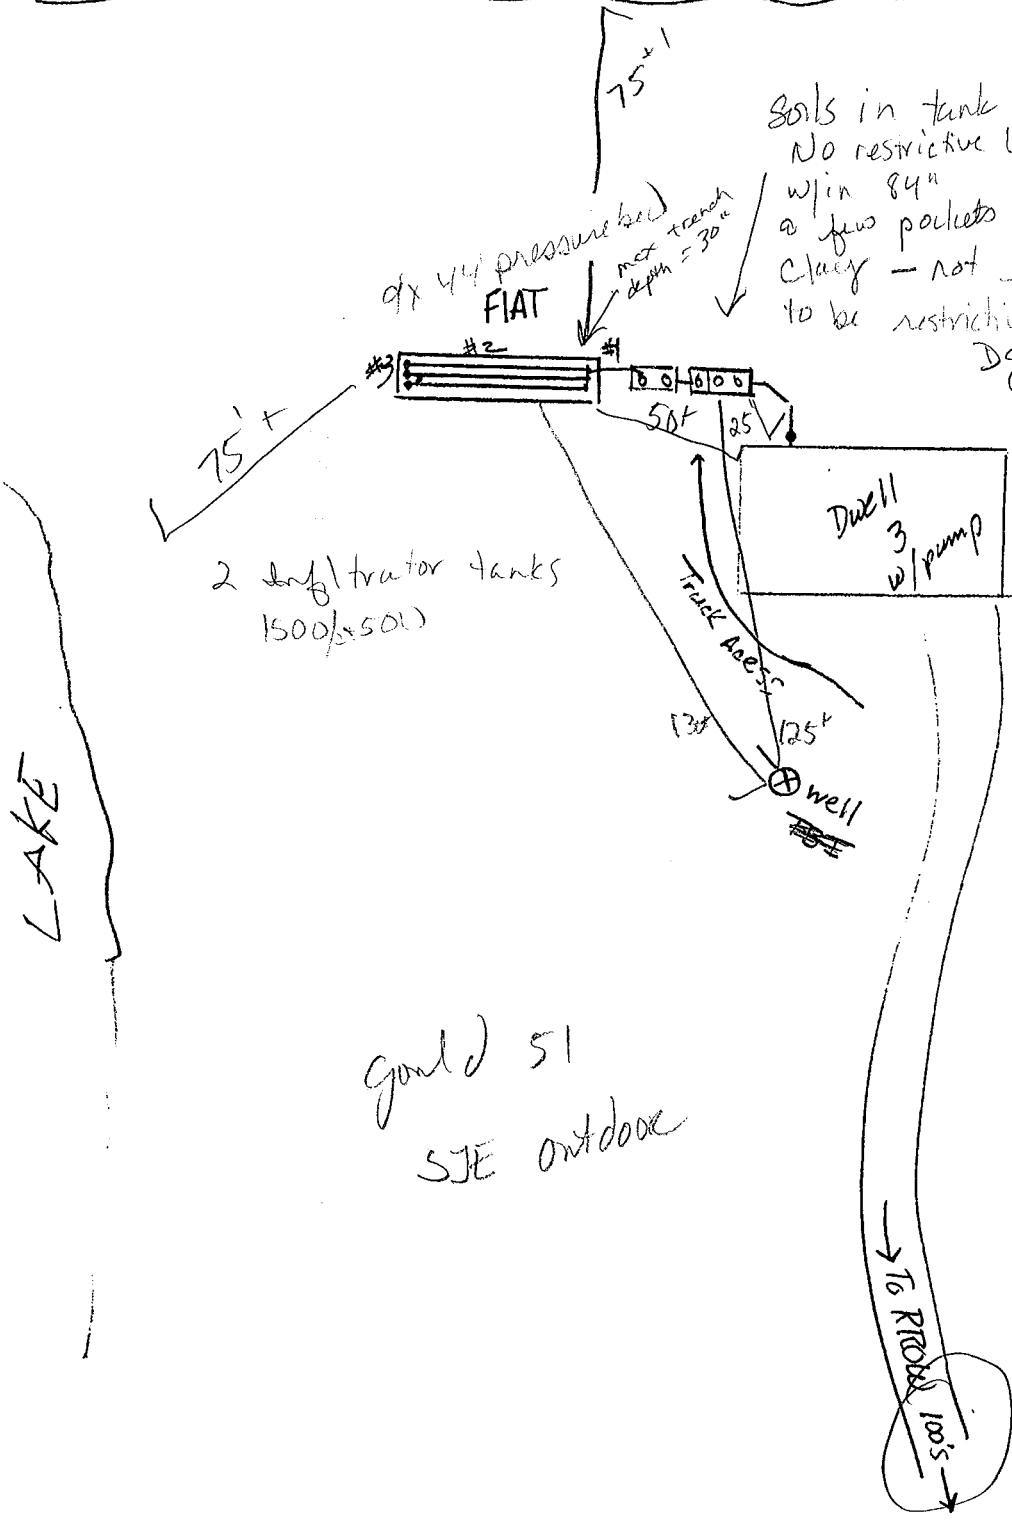 75'+
Soils in tank
No restrictive
w/in 84"
a few pockets
Clay - not
to be restricti
9x44' pressure bed
max trench
depth = 30"
FlAT
#3
#2
#1
50+
25'
75'+
Dwell
3
w/pump
2 Infiltrator tanks
1500/
Truck Access
130+
125+
well
LAKE
Gould 51
SJE Outdoor
→ To RROW 100's →